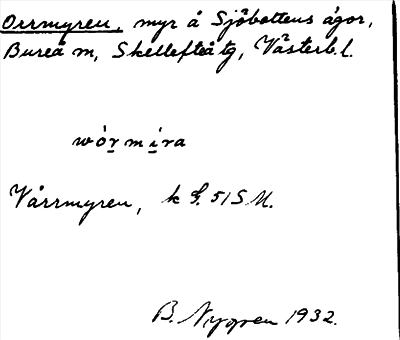 Orrmyren, myr å Sjöbottens ägor,
Bureå m, Skellefteå tg, Västerb. l.
wórmíra
Vårrmyren, k 51 S.M.
B. Nygren 1932.